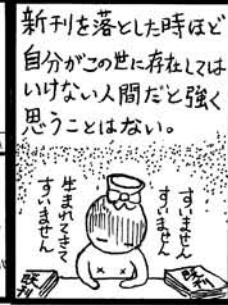 新刊を落とした時ほど
自分がこの世に存在しては
いけない人間だと強く
思うことはない。
すいません
すいません
生まれてきて
すいません
既刊
既刊